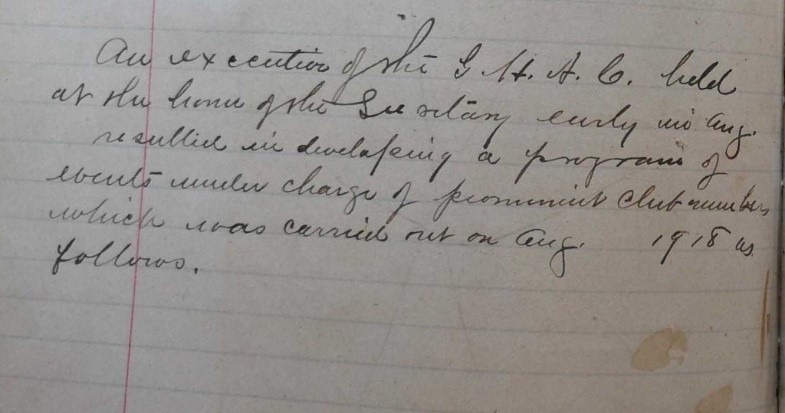 An executive of the G. H. A. C. held
at the home of the Secretary early in Aug.
resulted in developing a program of
events under charge of prominent club members
which was carried out on Aug. 1918 as
follows.